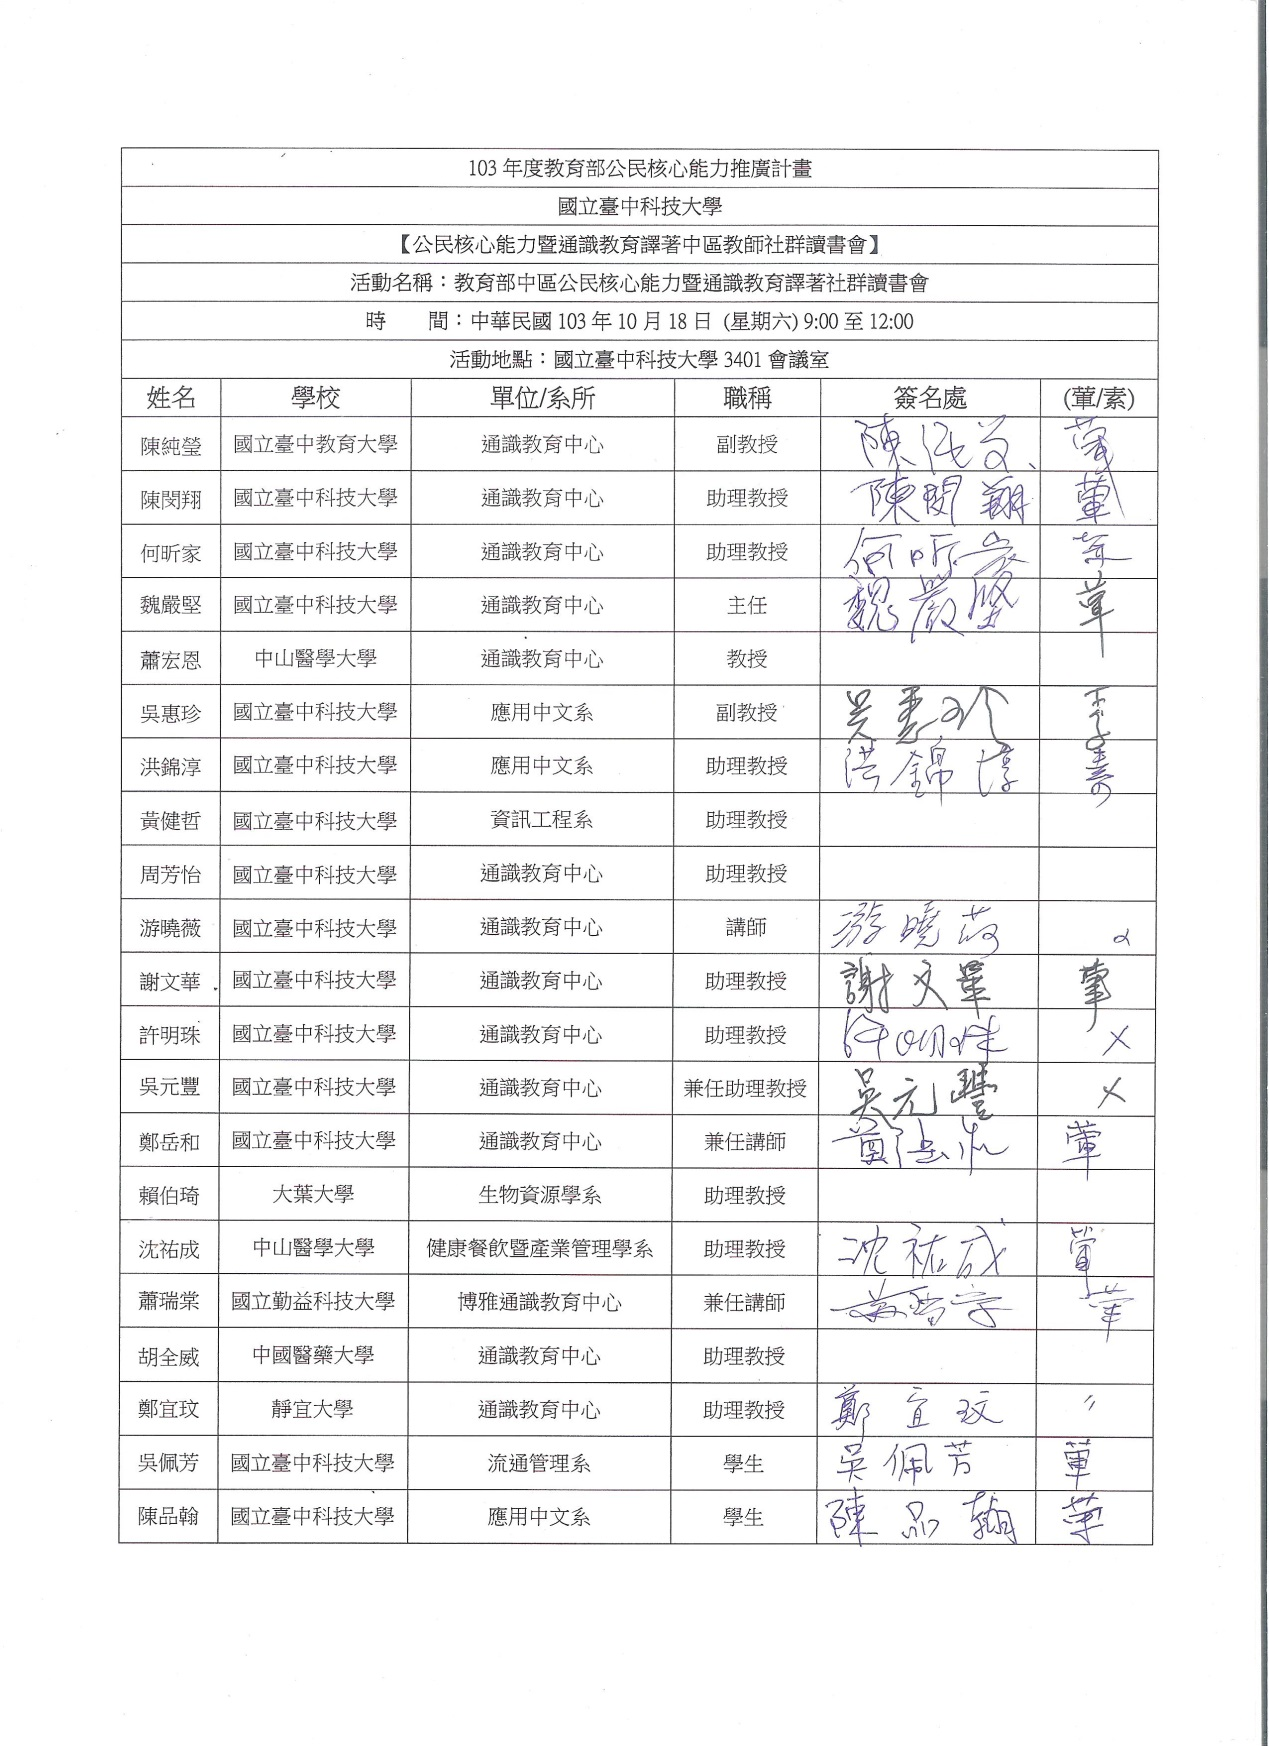 103 年度教育部公民核心能力推廣計畫
國立臺中科技大學
【公民核心能力暨通識教育譯著中區教師社群讀書會】
活動名稱：教育部中區公民核心能力暨通識教育譯著社群讀書會
時　　間：中華民國 103 年 10 月 18 日 (星期六) 9:00 至 12:00
活動地點：國立臺中科技大學 3401 會議室
姓名 學校 單位/系所 職稱 簽名處 (葷/素)
陳純瑩 國立臺中教育大學 通識教育中心 副教授 陳純瑩 葷
陳閔翔 國立臺中科技大學 通識教育中心 助理教授 陳閔翔 葷
何昕家 國立臺中科技大學 通識教育中心 助理教授 何昕家
魏嚴堅 國立臺中科技大學 通識教育中心 主任 魏嚴堅 葷
蕭宏恩 中山醫學大學 通識教育中心 教授
吳惠珍 國立臺中科技大學 應用中文系 副教授 吳惠珍
洪錦淳 國立臺中科技大學 應用中文系 助理教授 洪錦淳 素
黃健哲 國立臺中科技大學 資訊工程系 助理教授
周芳怡 國立臺中科技大學 通識教育中心 助理教授
游曉薇 國立臺中科技大學 通識教育中心 講師 游曉薇
謝文華 國立臺中科技大學 通識教育中心 助理教授 謝文華 葷
許明珠 國立臺中科技大學 通識教育中心 助理教授 許明珠 ×
吳元豐 國立臺中科技大學 通識教育中心 兼任助理教授 吳元豐 ×
鄭岳和 國立臺中科技大學 通識教育中心 兼任講師 鄭岳和 葷
賴伯琦 大葉大學 生物資源學系 助理教授
沈祐成 中山醫學大學 健康餐飲暨產業管理學系 助理教授 沈祐成 葷
蕭瑞棠 國立勤益科技大學 博雅通識教育中心 兼任講師 葷
胡全威 中國醫藥大學 通識教育中心 助理教授
鄭宜玟 靜宜大學 通識教育中心 助理教授 鄭宜玟 〃
吳佩芳 國立臺中科技大學 流通管理系 學生 吳佩芳 葷
陳品翰 國立臺中科技大學 應用中文系 學生 陳品翰 葷